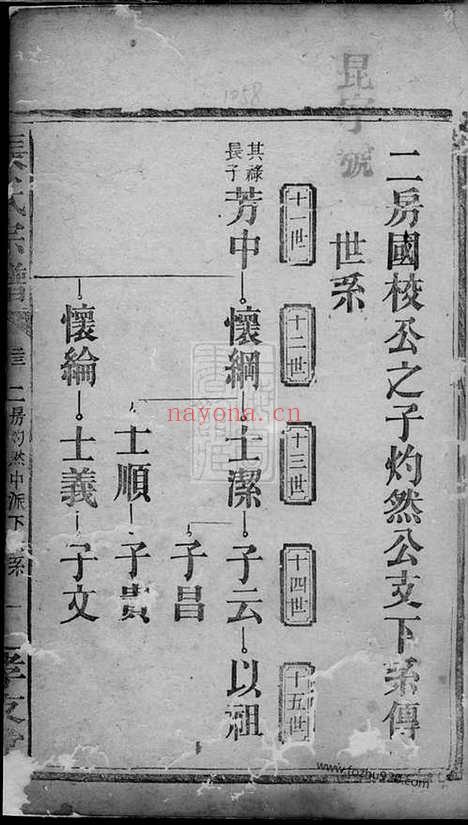 昆字號
1058
二房國校公之子灼然公支下系傳
世系
十一世
十二世
十三世
十四世
十五世
其祿
長子
芳中
懷綱
士潔
子云
以祖
子昌
士順
子貴
懷綸
士義
子文
二房灼然中派下
系
一
nayona.cn
www.fozhu920.com